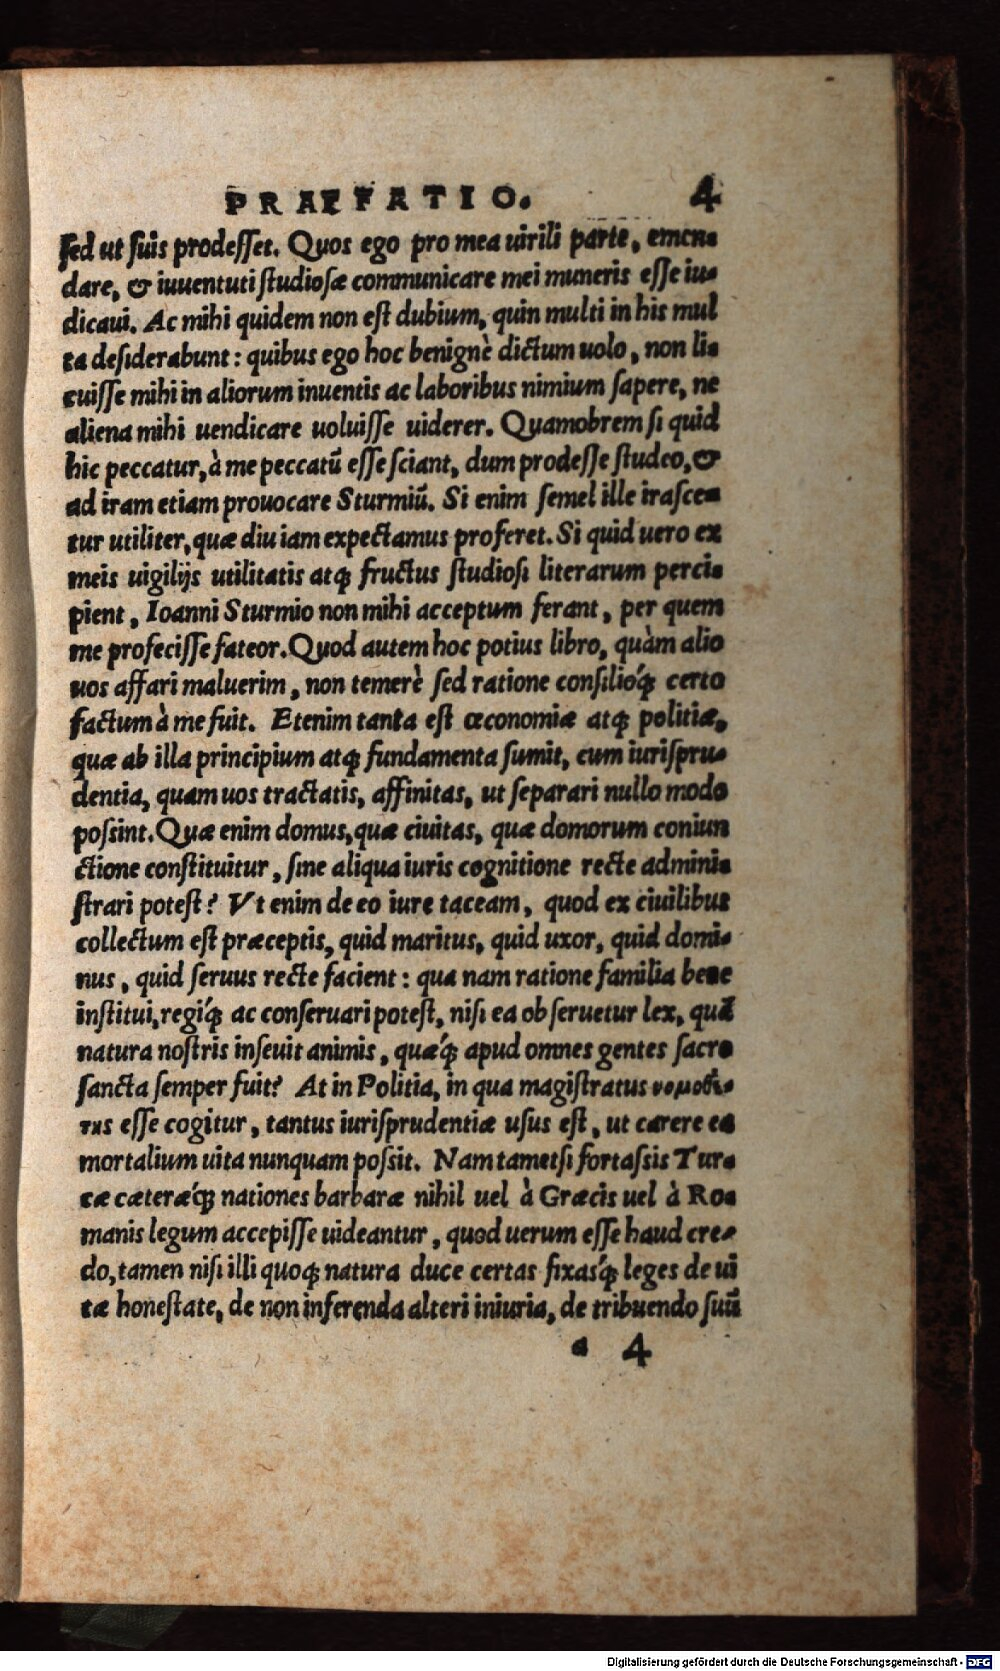 PRAEFATIO. 4
sed ut suis prodesset. Quos ego pro mea uirili parte, emen-
dare, & iuuentuti studiosæ communicare mei muneris esse iu-
dicaui. Ac mihi quidem non est dubium, quin multi in his mul
ta desiderabunt: quibus ego hoc benignè dictum uolo, non li-
cuisse mihi in aliorum inuentis ac laboribus nimium sapere, ne
aliena mihi uendicare uoluisse uiderer. Quamobrem si quid
hic peccatur, à me peccatũ esse sciant, dum prodesse studeo, &
ad iram etiam prouocare Sturmiũ. Si enim semel ille irasce-
tur utiliter, quæ diu iam expectamus proferet. Si quid uero ex
meis uigilijs utilitatis atq; fructus studiosi literarum perci-
pient, Ioanni Sturmio non mihi acceptum ferant, per quem
me profecisse fateor. Quod autem hoc potius libro, quàm alio
uos affari maluerim, non temerè sed ratione consilióq; certo
factum à me fuit. Etenim tanta est œconomiæ atq; politiæ,
quæ ab illa principium atq; fundamenta sumit, cum iurispru-
dentia, quam uos tractatis, affinitas, ut separari nullo modo
possint. Quæ enim domus, quæ ciuitas, quæ domorum coniun
ctione constituitur, sine aliqua iuris cognitione recte admini-
strari potest? Vt enim de eo iure taceam, quod ex ciuilibus
collectum est præceptis, quid maritus, quid uxor, quid domi-
nus, quid seruus recte facient: qua nam ratione familia bene
institui, regíq; ac conseruari potest, nisi ea obseruetur lex, quã
natura nostris inseuit animis, quǽq; apud omnes gentes sacro
sancta semper fuit? At in Politia, in qua magistratus νομοθέ-
της esse cogitur, tantus iurisprudentiæ usus est, ut carere ea
mortalium uita nunquam possit. Nam tametsi fortassis Tur-
cæ cæterǽq; nationes barbaræ nihil uel à Græcis uel à Ro-
manis legum accepisse uideantur, quod uerum esse haud cre-
do, tamen nisi illi quoq; natura duce certas fixásq; leges de ui
tæ honestate, de non inferenda alteri iniuria, de tribuendo suũ
a 4
Digitalisierung gefördert durch die Deutsche Forschungsgemeinschaft - DFG